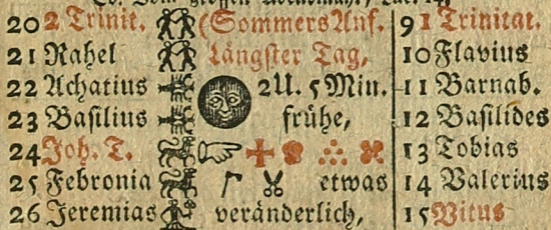 20 2 Trinit. (Sommers Anf. 9 1 Trinitat.
21 Rahel Längster Tag, 10 Flavius
22 Achatius 2U. 5 Min. 11 Barnab.
23 Basilius frühe, 12 Basilides
24 Joh. T. 13 Tobias
25 Febronia etwas 14 Valerius
26 Jeremias veränderlich, 15 Vitus